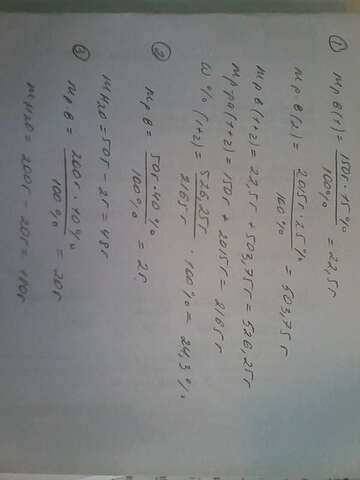 ① m р.в (1) = 150г · 15% / 100% = 22,5г
m р.в (2) = 2015г · 25% / 100% = 503,75г
m р.в (1+2) = 22,5г + 503,75г = 526,25г
m р-ра (1+2) = 150г + 2015г = 2165г
ω % (1+2) = 526,25г / 2165г · 100% = 24,3%
② m р.в = 50г · 40% / 100% = 2г
m H2O = 50г - 2г = 48г
③ m р.в = 200г · 10% / 100% = 20г
m H2O = 200г - 20г = 110г